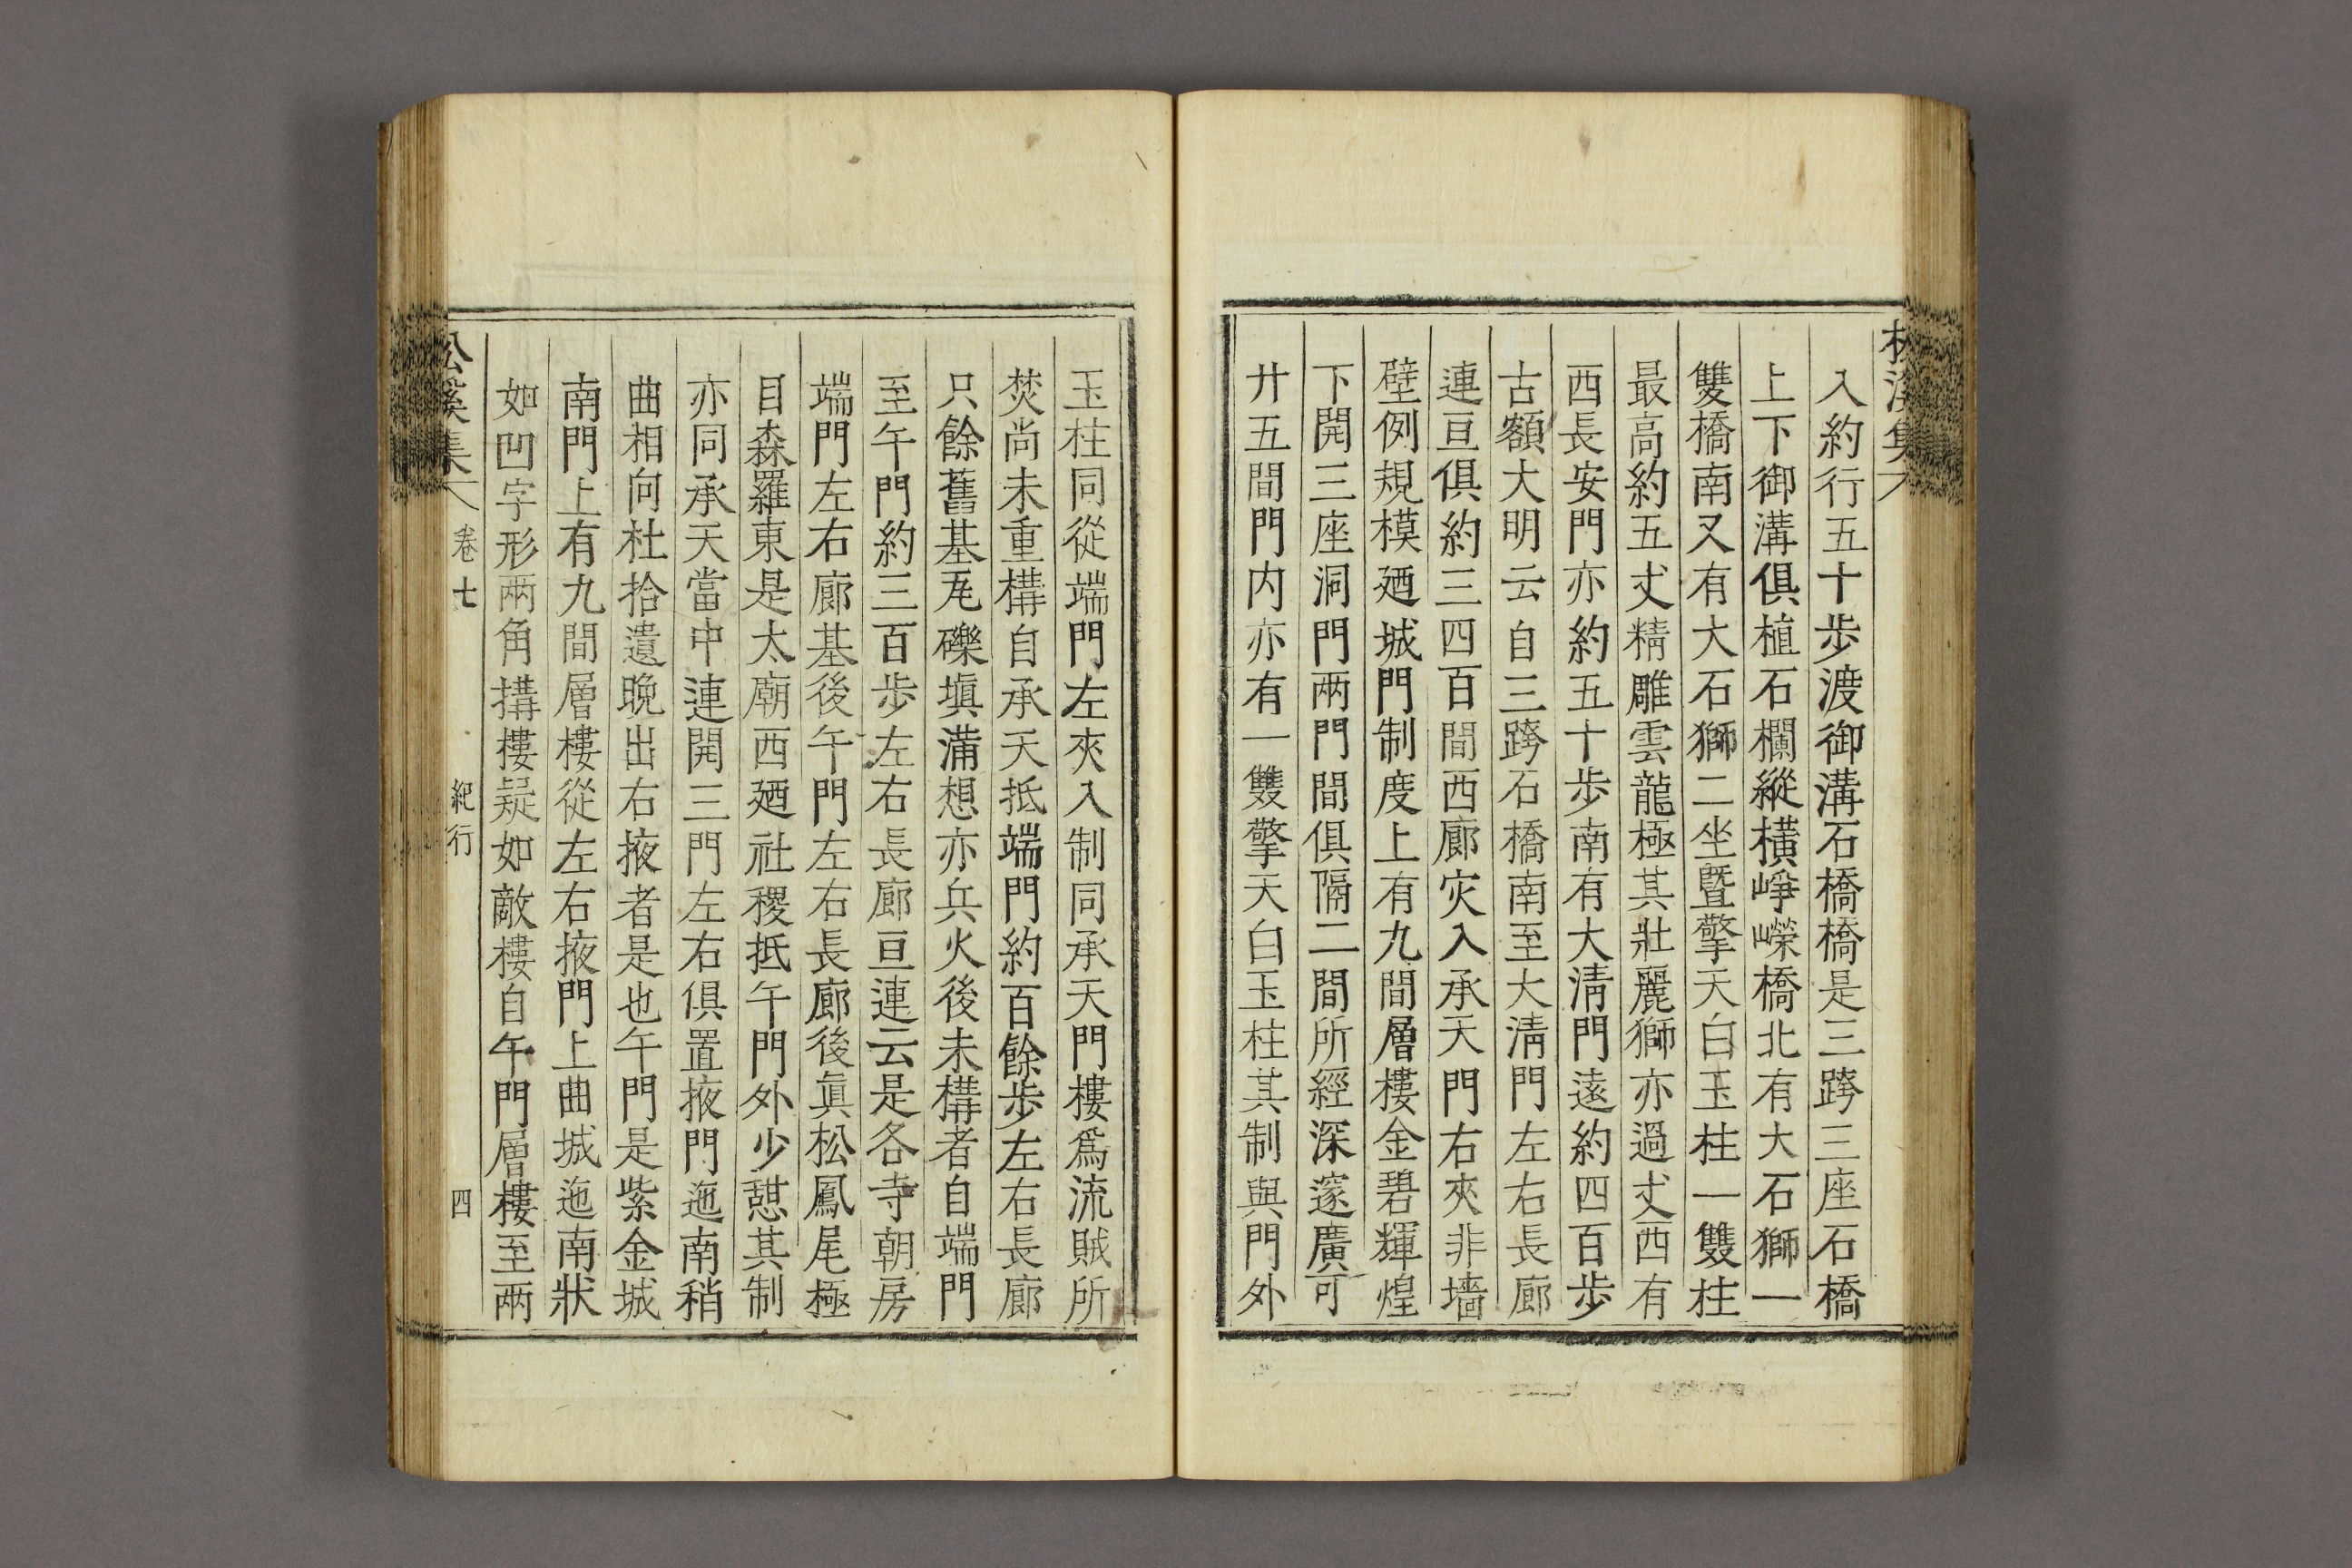 入約行五十步渡御溝石橋橋是三跨三座石橋
上下御溝俱植石欄縱橫崢嶸橋北有大石獅一
雙橋南又有大石獅二坐曁擎天白玉柱一雙柱
最高約五丈精雕雲龍極其壯麗獅亦過丈西有
西長安門亦約五十步南有大淸門遠約四百步
古額大明云自三跨石橋南至大淸門左右長廊
連亘俱約三四百間西廊灾入承天門右夾非墻
壁例規模廼城門制度上有九間層樓金碧輝煌
下開三座洞門兩門間俱隔二間所經深邃廣可
廿五間門内亦有一雙擎天白玉柱其制與門外
玉柱同從端門左夾入制同承天門樓爲流賊所
焚尚未重構自承天抵端門約百餘步左右長廊
只餘舊基瓦礫塡滿想亦兵火後未構者自端門
至午門約三百步左右長廊亘連云是各寺朝房
端門左右廊基後午門左右長廊後眞松鳳尾極
目森羅東是太廟西廼社稷抵午門外少憇其制
亦同承天當中連開三門左右俱置掖門迤南稍
曲相向杜拾遺晚出右掖者是也午門是紫金城
南門上有九間層樓從左右掖門上曲城迤南狀
如凹字形兩角搆樓疑如敵樓自午門層樓至兩
松溪集 卷七 紀行 四